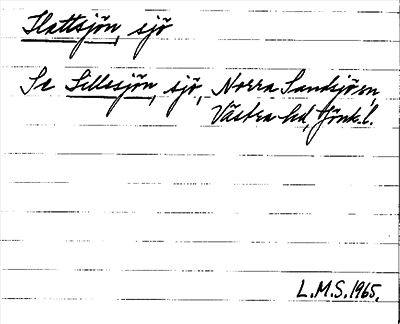 Flattsjön, sjö
Se Lillesjön, sjö, Norra Sandsjö sn,
Västra hd, Jönk.l.
L.M.S. 1965.